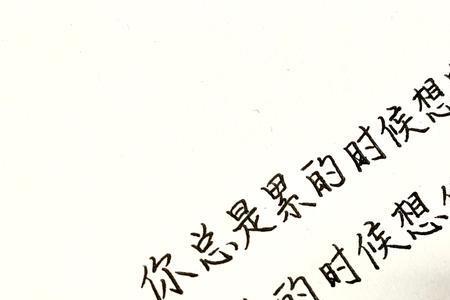 你总是累的时候想
的时候想